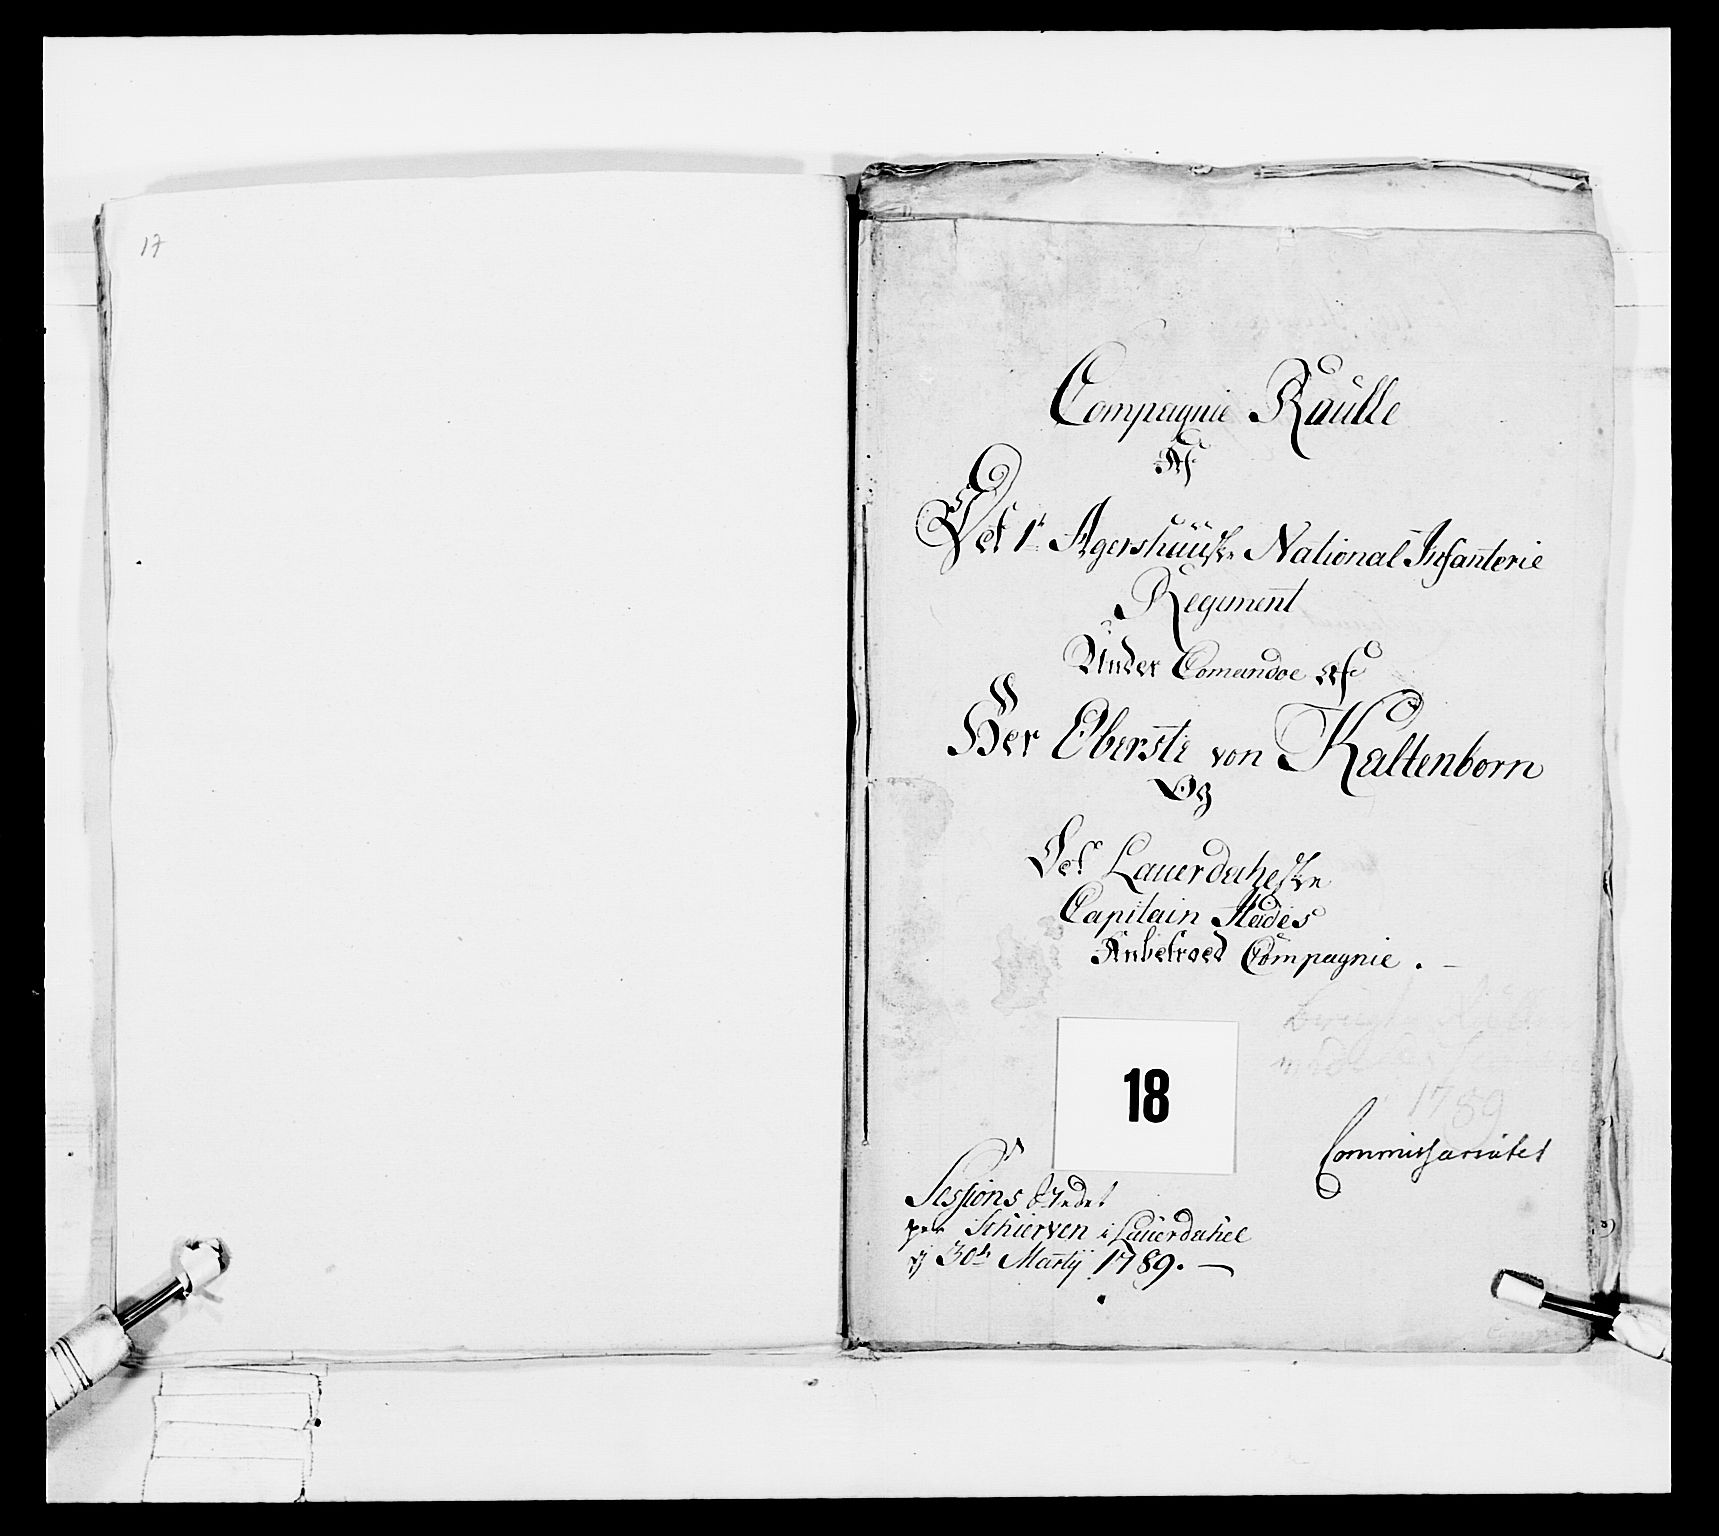 17
Compagnie Raülle
Af
Det 1te Agershuuske National Infanterie
Regiment
Under Comandoe af
Her Oberste von Kaltenborn
Og
Det Lauerdahlske
Capitain Stades
Anbetroed Compagnie. —
1789
18
Commissariatet
Sessions Stedet
paa Schierven i Lauerdahel
d 30te Martij 1789. —